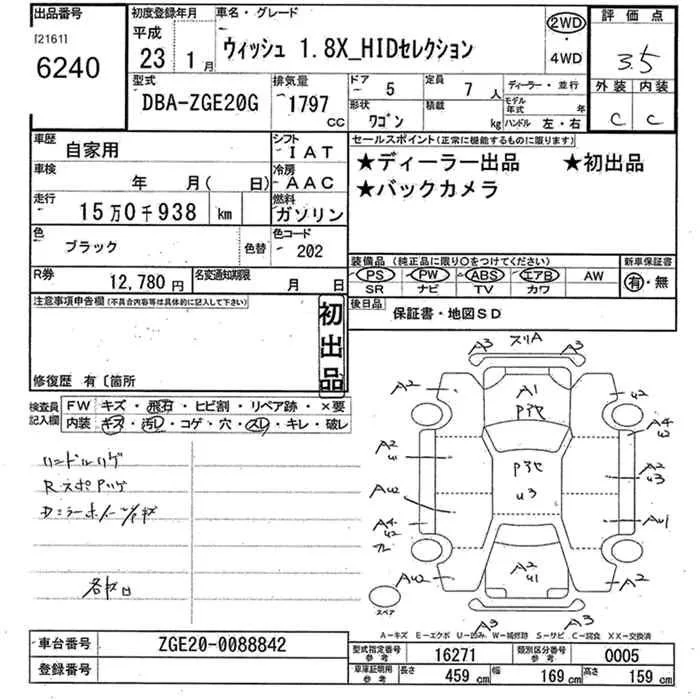 出品番号 初度登録年月 車名・グレード 2WD 評価点
[2161] 平成
6240 23年 1月 ウィッシュ 1.8X_HIDセレクション 4WD 3.5
型式 排気量 ドア 5 定員 7人 ディーラー・並行 外装 内装
DBA-ZGE20G 1797cc 形状 ワゴン 積載 kg モデル年式 年 ハンドル 左・右 C C
車歴 自家用 シフト IAT セールスポイント(正常に機能するものに限ります)
車検 年 月( 日) 冷房 AAC ★ディーラー出品 ★初出品
走行 15万0千938 km 燃料 ガソリン ★バックカメラ
色 ブラック 色替 色コード 202
装備品(純正品に限り○をつけてください) 新車保証書
R券 12,780円 名変通知期限 月 日 PS PW ABS エアB AW 有・無
SR ナビ TV カワ
注意事項申告欄(不具合内容等は具体的に記入して下さい) 初出品 後日品 保証書・地図SD
修復歴 有〔箇所
検査員記入欄 FW キズ・飛石・ヒビ割・リペア跡・×要
内装 キズ・汚レ・コゲ・穴・スレ・キレ・破レ
ハンドルハゲ
Rスポアリゲ
各キズ凹
A3 スリA A3
A2 A1 U2
P3セ
A4 U3
A2 U1 P3セ A2 U3
U3
AU2 AU1
A4 U2
AU2 A2 U1 A2
スペア
A3 A3
A-キズ E-エクボ U-凹み W-補修跡 S-サビ C-腐食 XX-交換済
車台番号 ZGE20-0088842 型式指定番号 参考 16271 類別区分番号 参考 0005
登録番号 車庫証明用 参考 長さ 459cm 幅 169cm 高さ 159cm